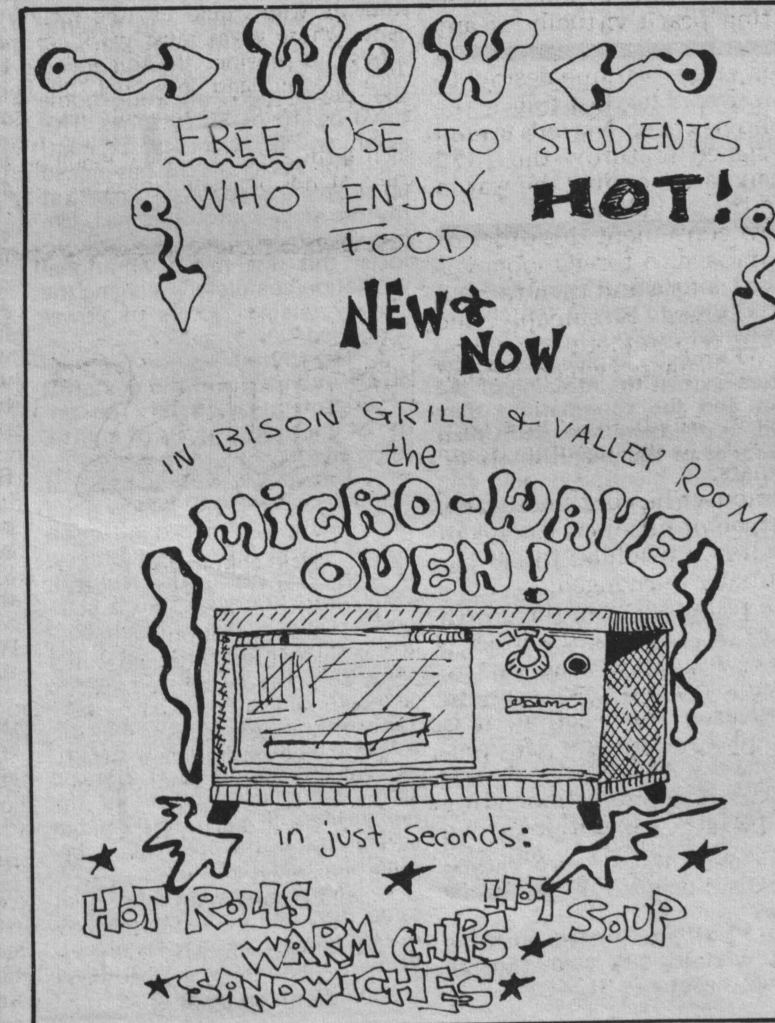 WOW
FREE USE TO STUDENTS
WHO ENJOY HOT!
FOOD
NEW &
NOW
IN BISON GRILL & VALLEY ROOM
the
MiCRO-WAVE
OVEN!
in just seconds:
HOT ROLLS HOT SOUP
WARM CHIPS
SANDWICHES